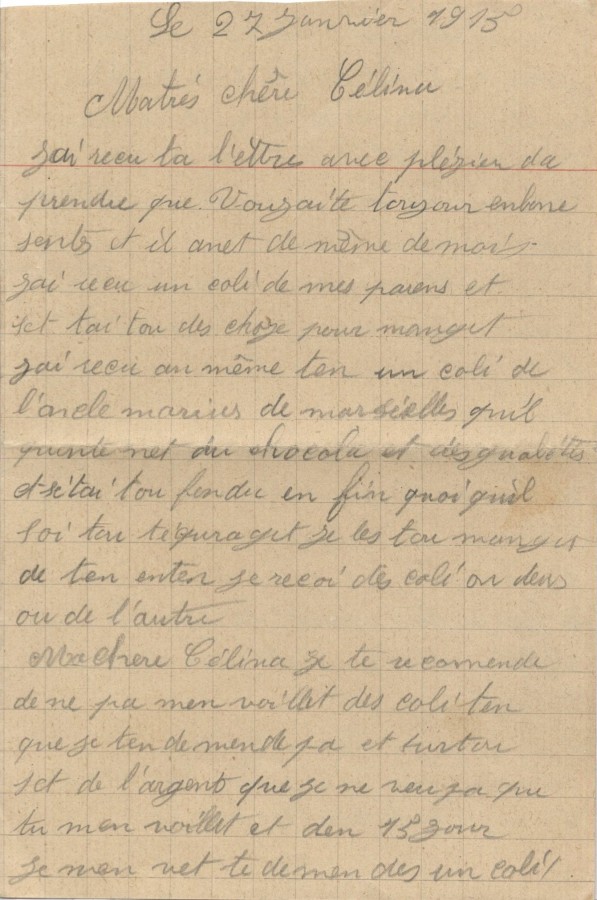 Le 27 Janvier 1915
Matrés chêre Célina
jai recu ta l'ettre avec plézien da
prendre que Vouzaite toujour enbone
sentz et il anet de même de mois
jai recu un coli de mes parens et
set tai tou des choze pour manget
jai recu au même ten un coli de
l'oncle marius de marseilles qu'il
net du chocola et des
et sétai tou fondu en fin quoi quil
soi tou je les tou manget
de ten enten je recoi des coli ou deus
ou de l'autre
Machere Célina je te recomende
de ne pa men voillet des coli ten
que je ten demende pa et surtou
set de l'argent que je ne veu pa que
tu men voillet et den 15 jour
je men vet te demendes un coli